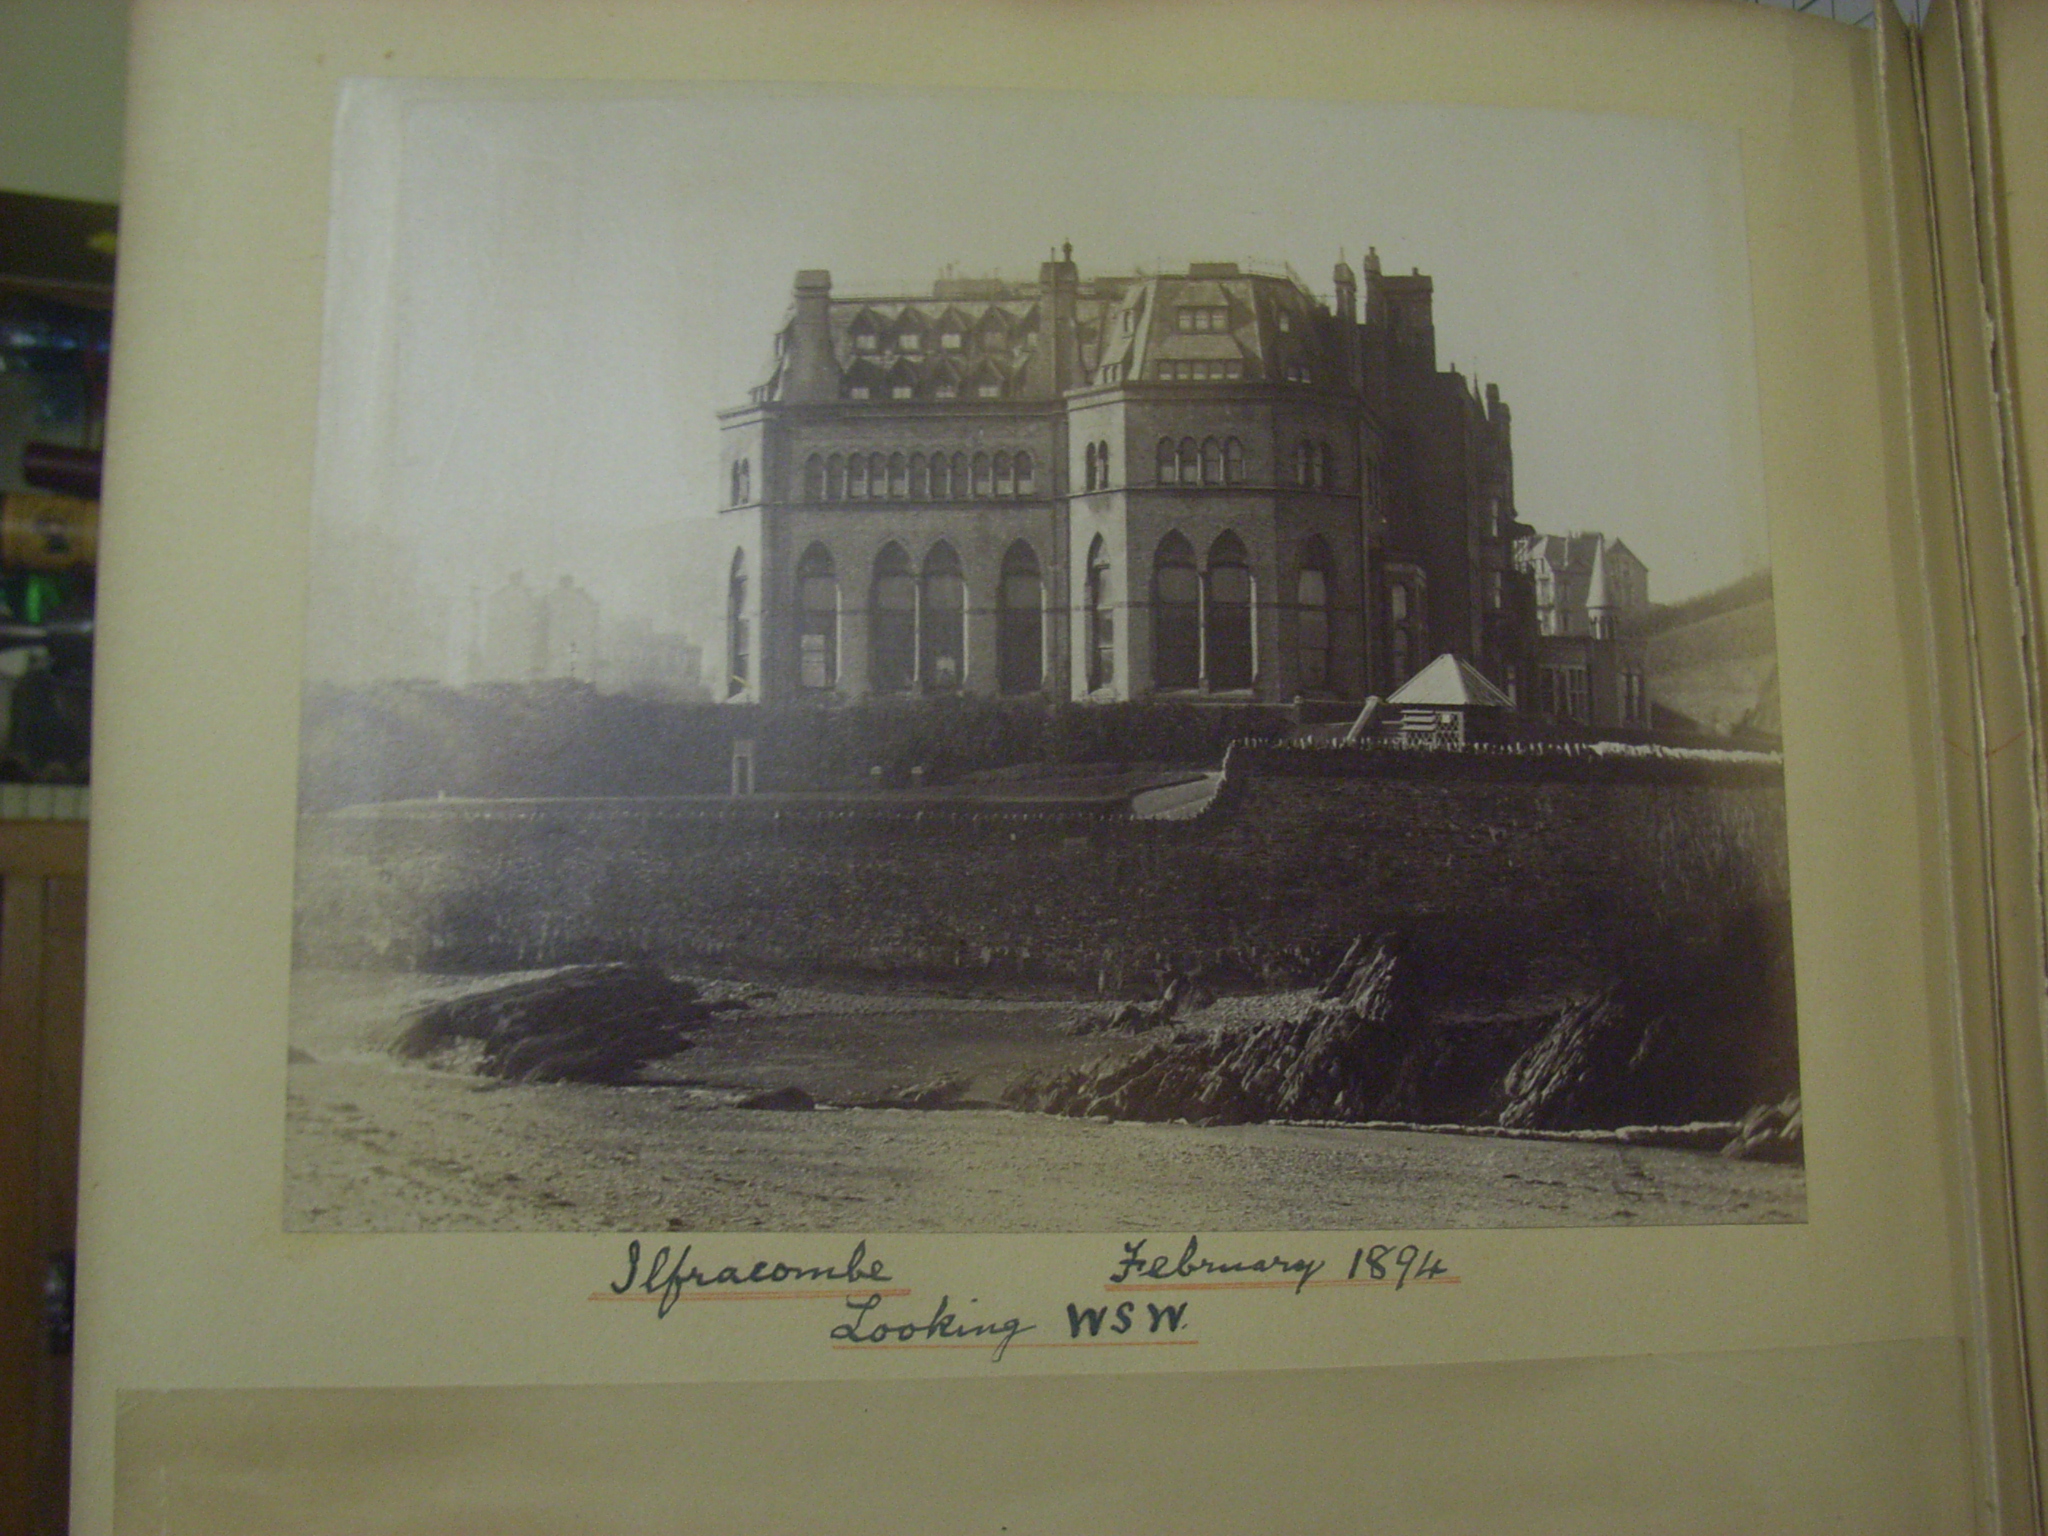 Ilfracombe February 1894
Looking WSW.